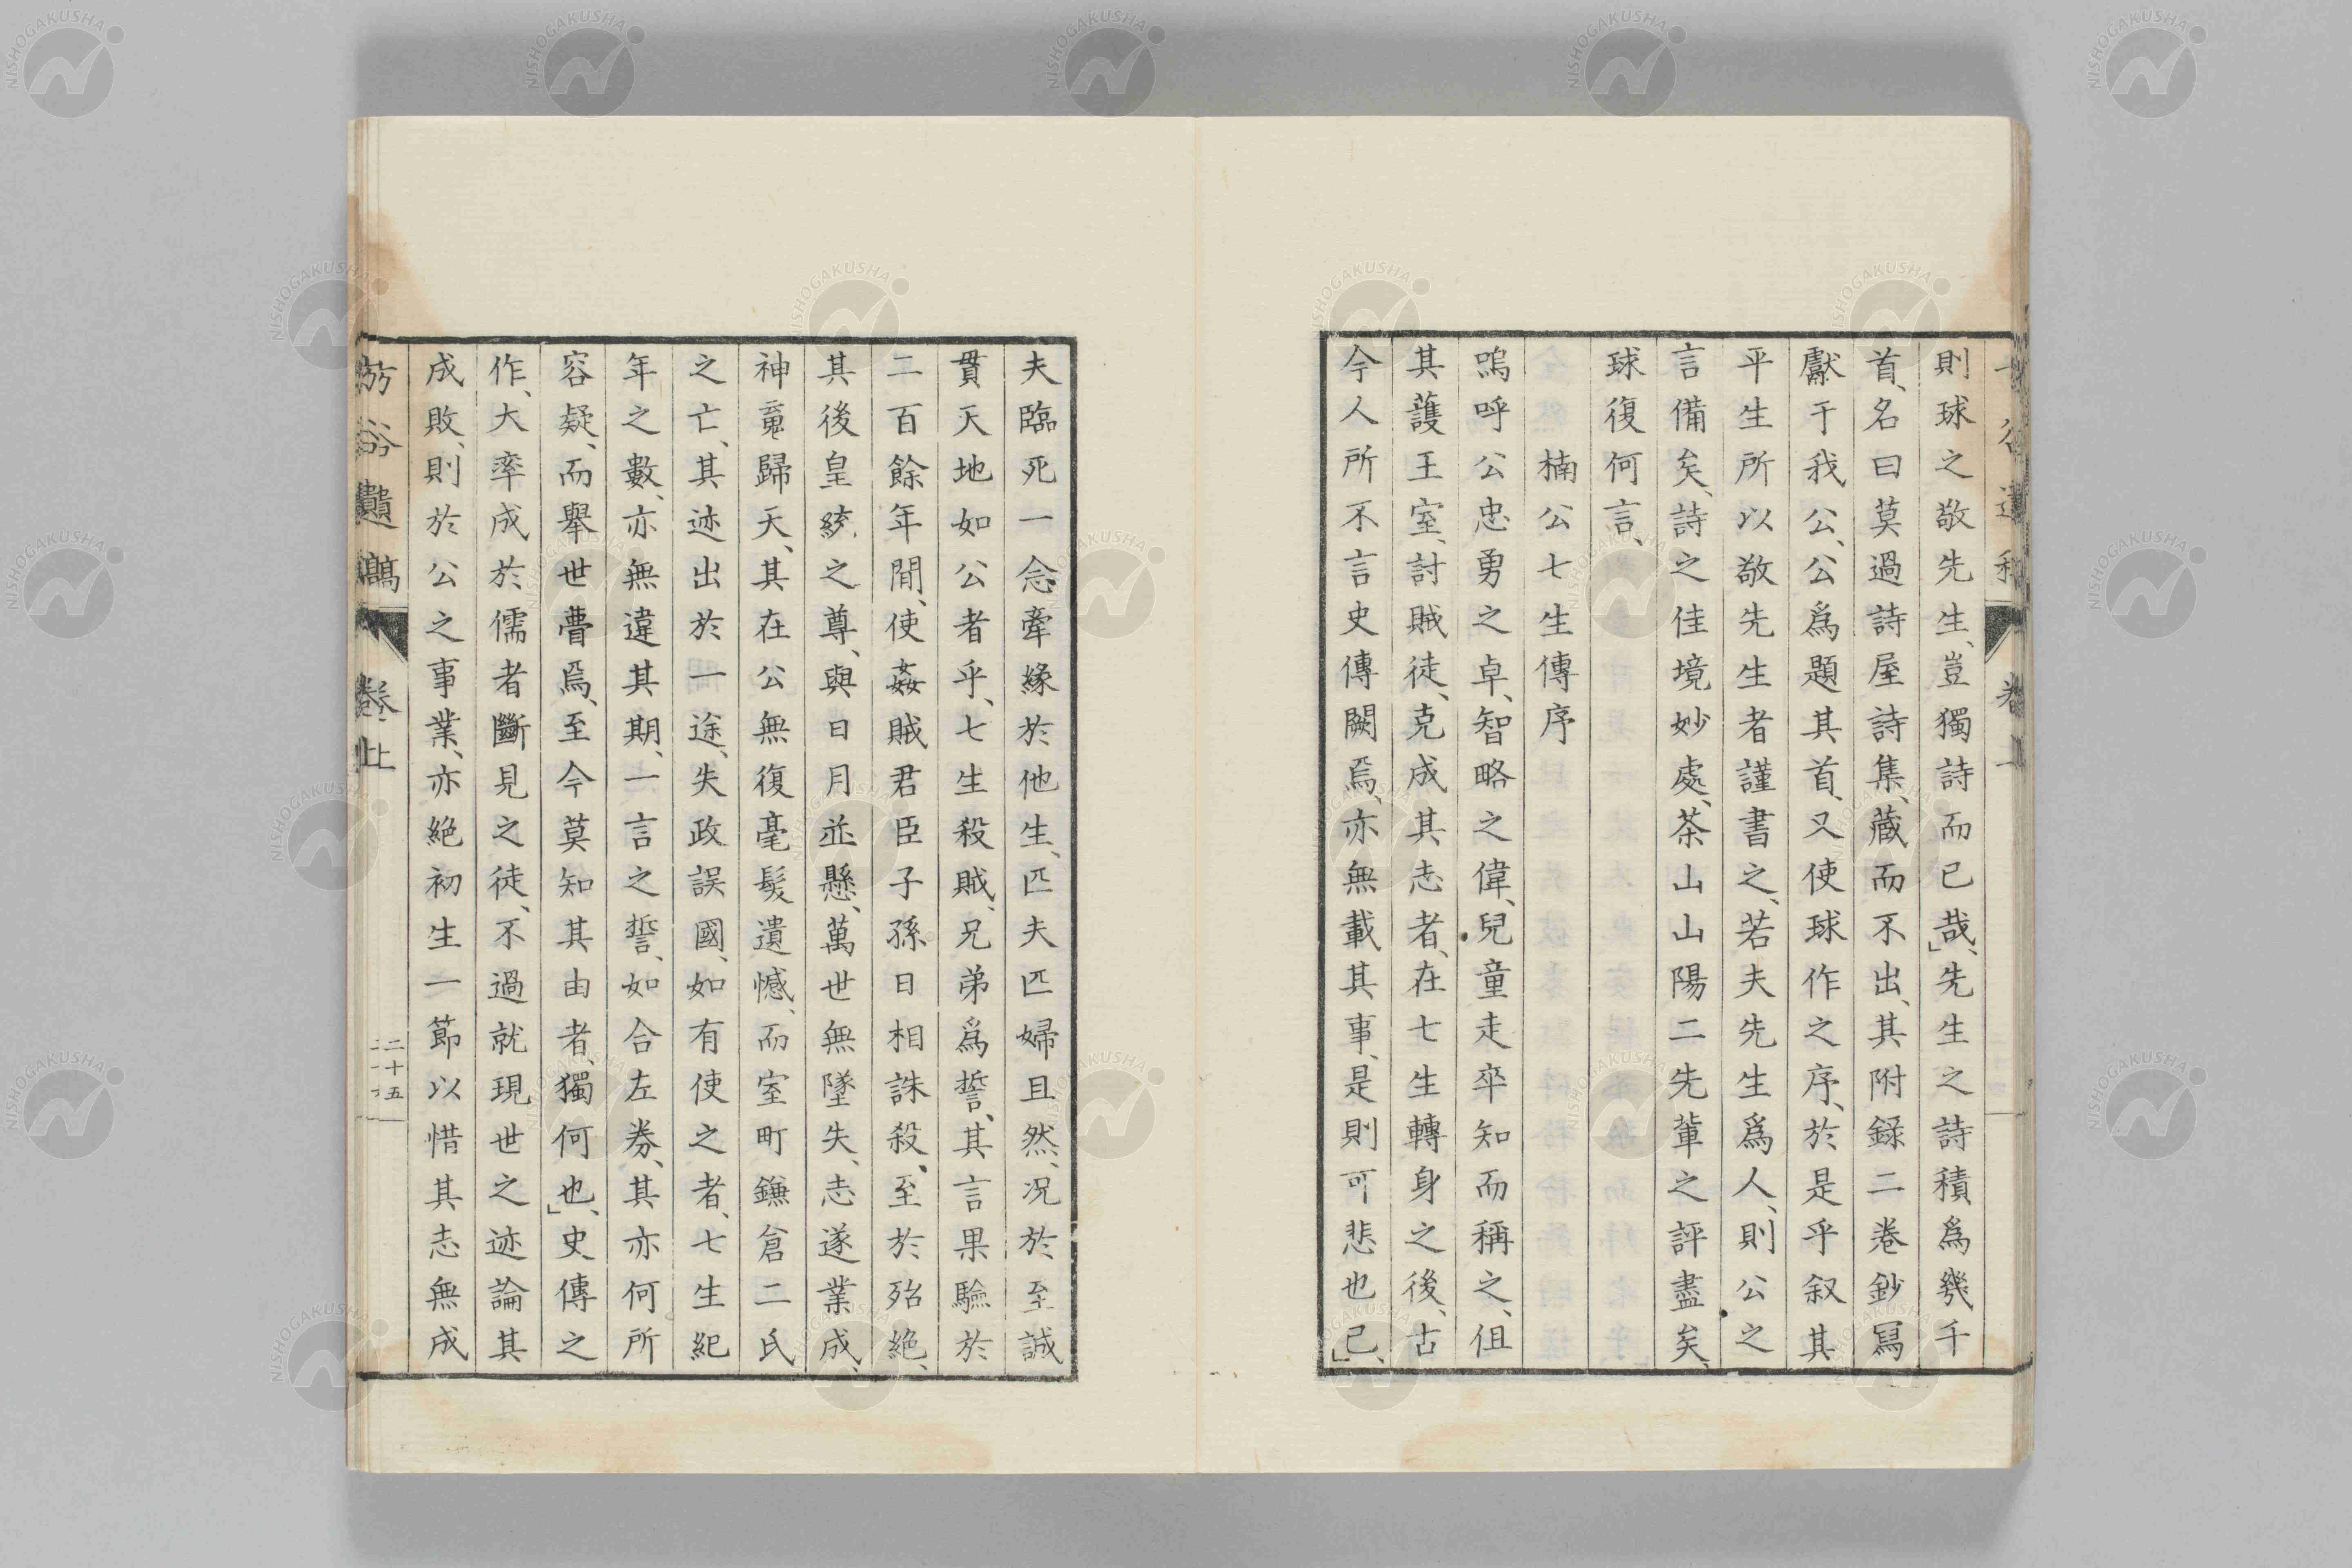 則球之敬先生、豈獨詩而已哉、」先生之詩積爲幾千
首、名曰莫過詩屋詩集、藏而不出、其附錄二卷鈔寫
獻于我公、公爲題其首、又使球作之序、於是乎叙其
平生所以敬先生者謹書之、若夫先生爲人、則公之
言備矣、詩之佳境妙處、茶山山陽二先輩之評盡矣、
球復何言、
楠公七生傳序
嗚呼公忠勇之卓、智略之偉、兒童走卒知而稱之、但
其護王室、討賊徒、克成其志者、在七生轉身之後、古
今人所不言史傳闕焉、亦無載其事、是則可悲也已、」
夫臨死一念牽緣於他生、匹夫匹婦且然、況於至誠
貫天地如公者乎、七生殺賊、兄弟爲誓、其言果驗於
二百餘年間、使姦賊君臣子孫日相誅殺、至於殆絕、
其後皇統之尊、與日月並懸、萬世無墜失、志遂業成、
神竟歸天、其在公無復毫髮遺憾、而室町鎌倉二氏
之亡、其迹出於一途、失政誤國、如有使之者、七生紀
年之數、亦無違其期、一言之誓、如合左券、其亦何所
容疑、而舉世瞢焉、至今莫知其由者、獨何也、」史傳之
作、大率成於儒者斷見之徒、不過就現世之迹論其
成敗、則於公之事業、亦絕初生一節以惜其志無成
卷上
二十五
NISHOGAKUSHA